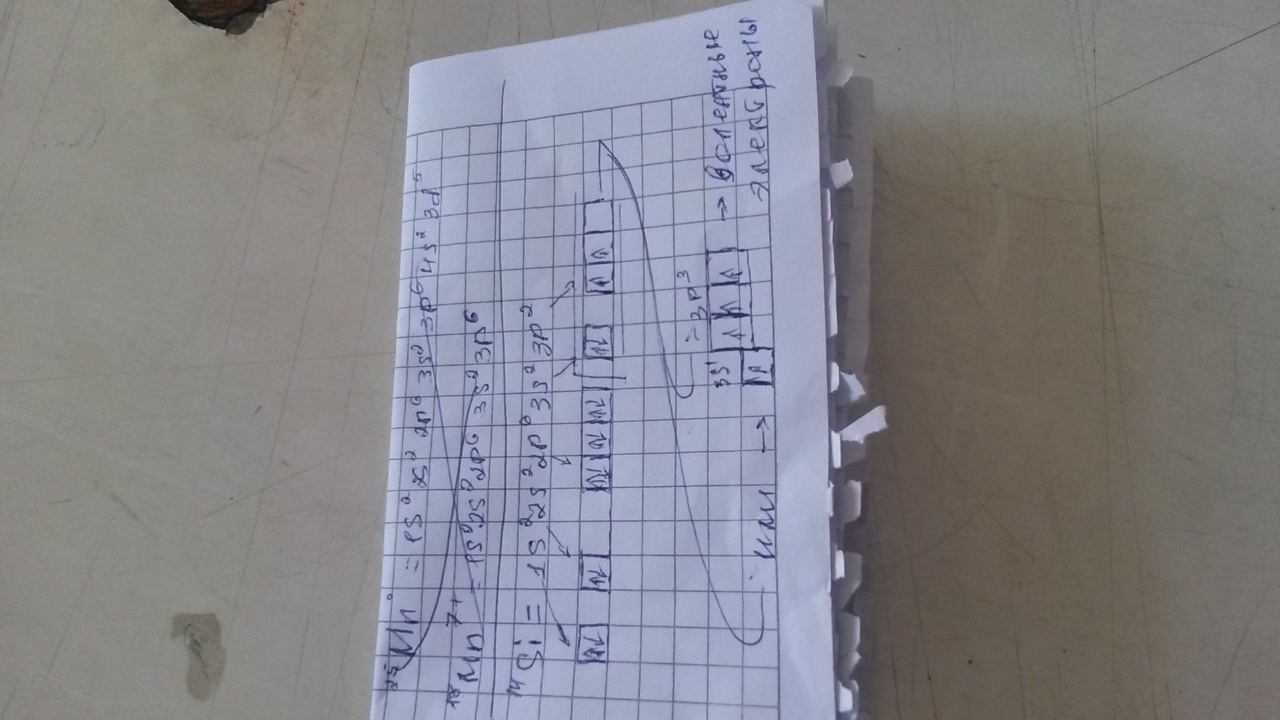 25 Mn° = 1s² 2s² 2p⁶ 3s² 3p⁶ 4s² 3d⁵
18 Mn⁷⁺ = 1s² 2s² 2p⁶ 3s² 3p⁶
14 Si = 1s² 2s² 2p⁶ 3s² 3p²
3p³
3s¹
или → → валентные
электроны